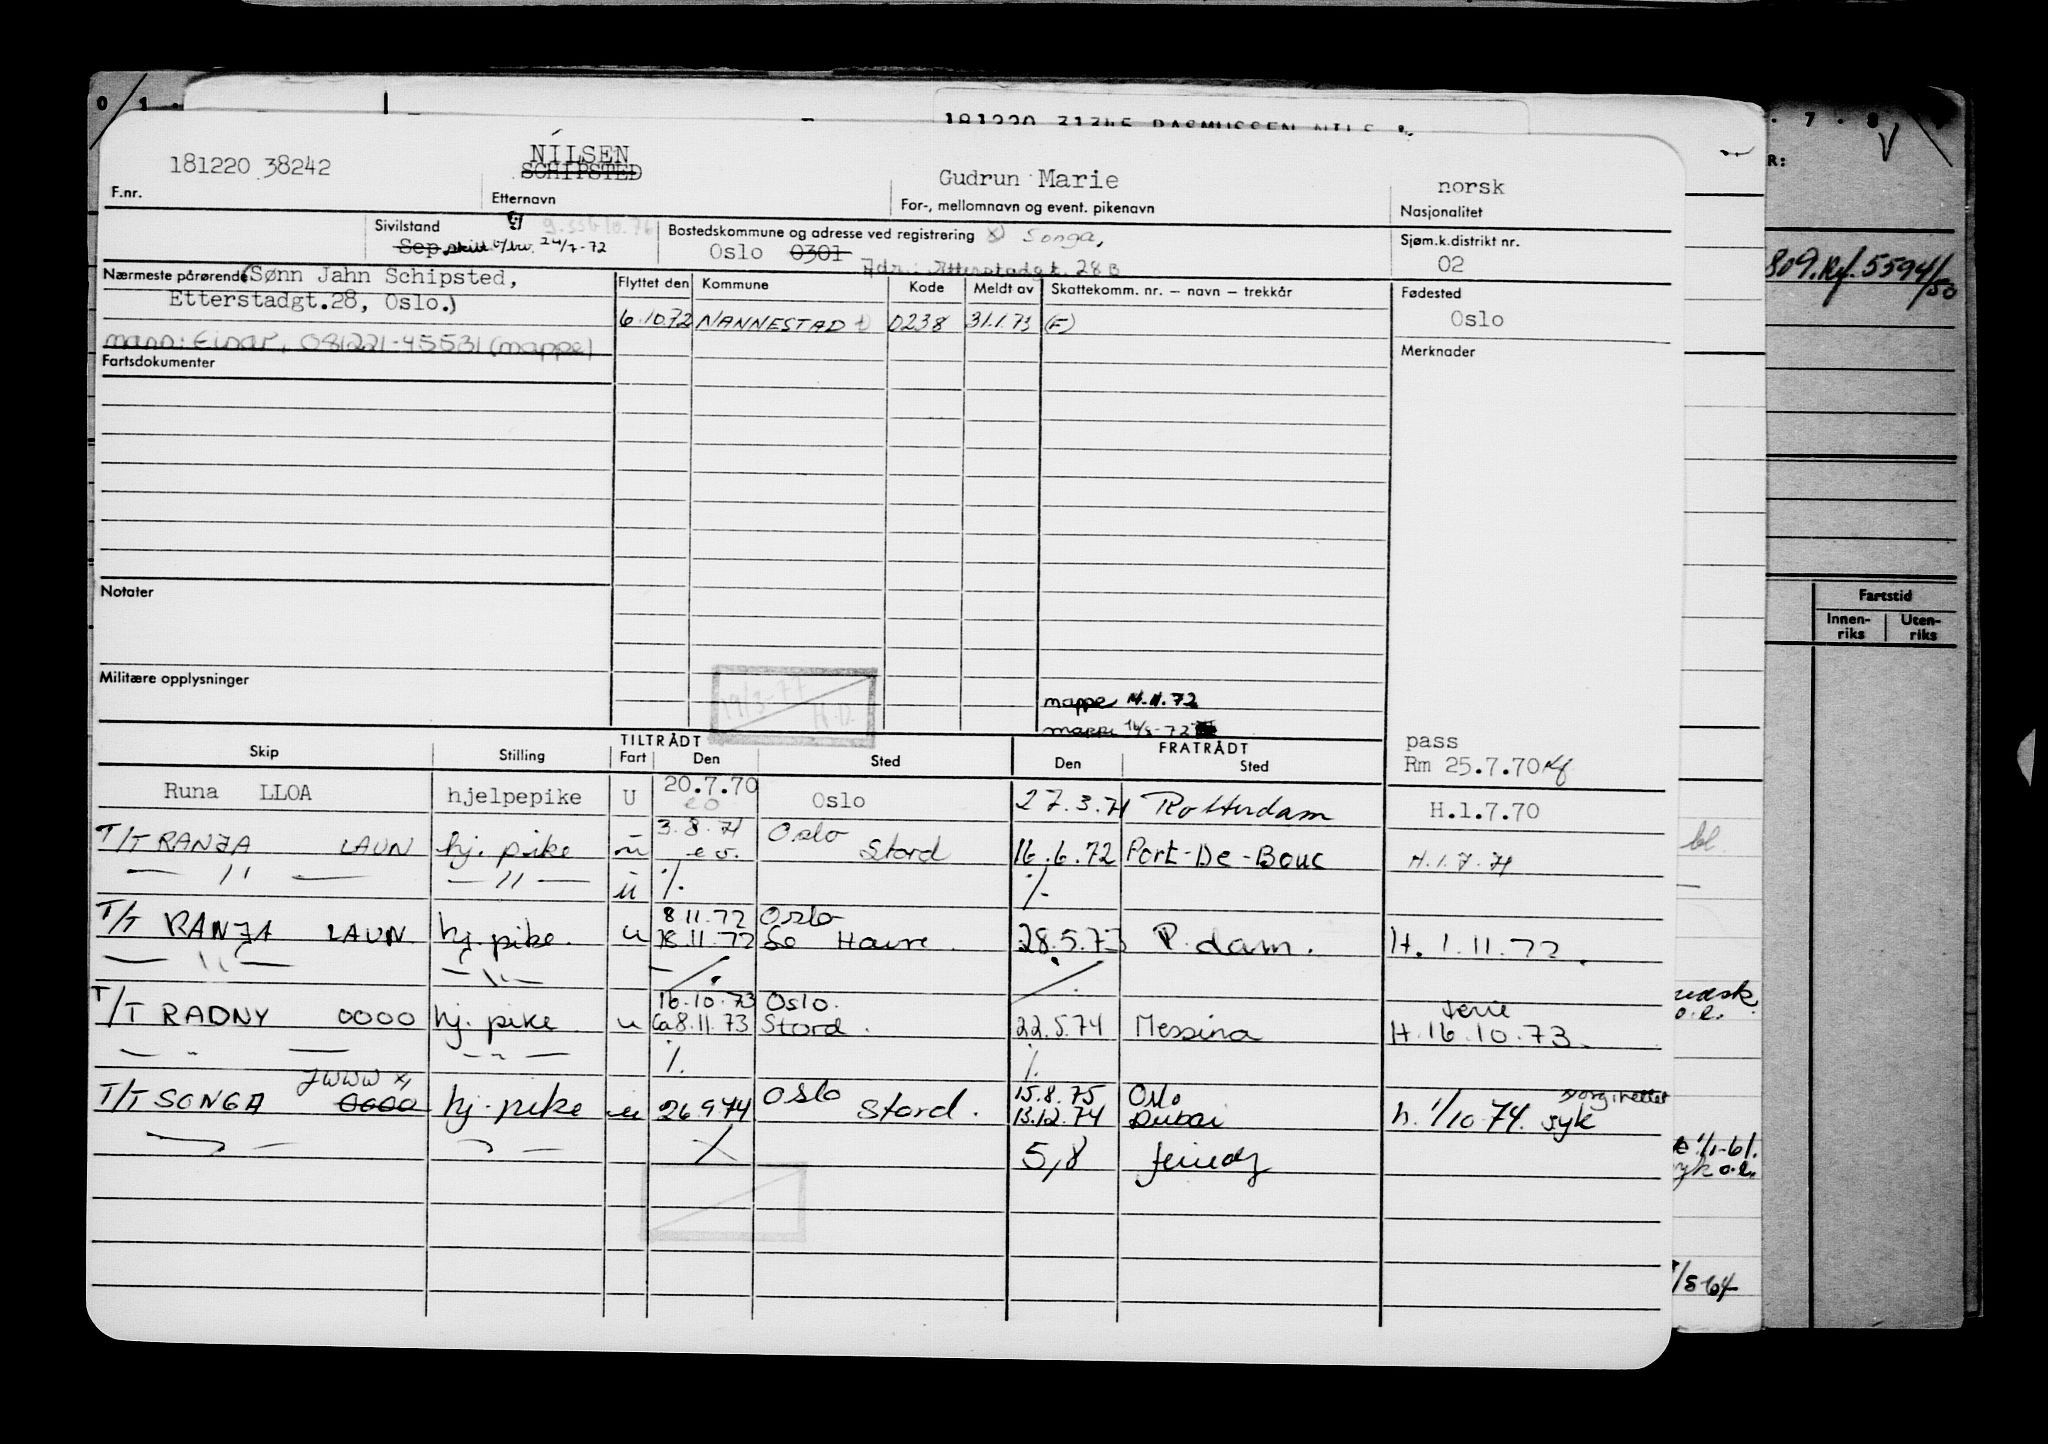 181220 31345 RASMUSSEN NILS
NILSEN
181220 38242 SCHIPSTED Gudrun Marie norsk
F.nr. Etternavn For-, mellomnavn og event. pikenavn Nasjonalitet
Sivilstand g Bostedskommune og adresse ved registrering x) Songa, Sjøm.k.distrikt nr.
Sep skilt 24/7-72 Oslo 0301 Adr.: Etterstadgt. 28B 02
Nærmeste pårørende (Sønn Jahn Schipsted, Flyttet den Kommune Kode Meldt av Skattekomm. nr. – navn – trekkår Fødested
Etterstadgt.28, Oslo.) 6.10.72 NANNESTAD 0238 31.1.73 (F) Oslo
mann: Einar, 081221-45531 (mappe) Merknader
Fartsdokumenter
Notater
Militære opplysninger
19/3-77 H.D.
mappe 14.11.72
mappe
TILTRÅDT FRATRÅDT pass
Skip Stilling Fart Den Sted Den Sted Rm 25.7.70
Runa LLOA hjelpepike U 20.7.70 Oslo 27.3.71 Rotterdam H.1.7.70
T/T RANJA LAUN hj. pike u 3.8.71 Oslo Stord 16.6.72 Port-De-Bouc H.1.7.71
— '' — — '' — u ·/. ·/.
T/T RANJA LAUN hj. pike. u 8.11.72 Oslo
18.11.72 Le Havre. 28.5.73 R.dam. H. 1.11.72.
— '' — — '' —
T/T RADNY OOOO hj. pike u 16.10.73 Oslo. serie
Ca 8.11.73 Stord. 22.5.74 Messina H.16.10.73.
— " — — " — ·/. ·/.
JWWW x)
T/T SONGA OOOO hj. pike u 26.9.74 Oslo Stord. 15.8.75 Oslo
13.12.74 Dubai h. 1/10-74. syk
5,8
R:
809. Rf. 5594/50
Fartstid
Innen-riks Uten-riks
bl.
1/1-61.
syk o.l.
/8-64